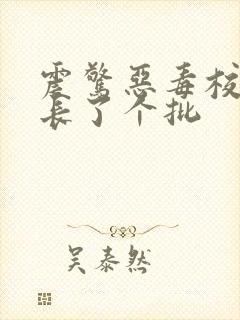 震惊恶毒校
长了个批
吴泰然